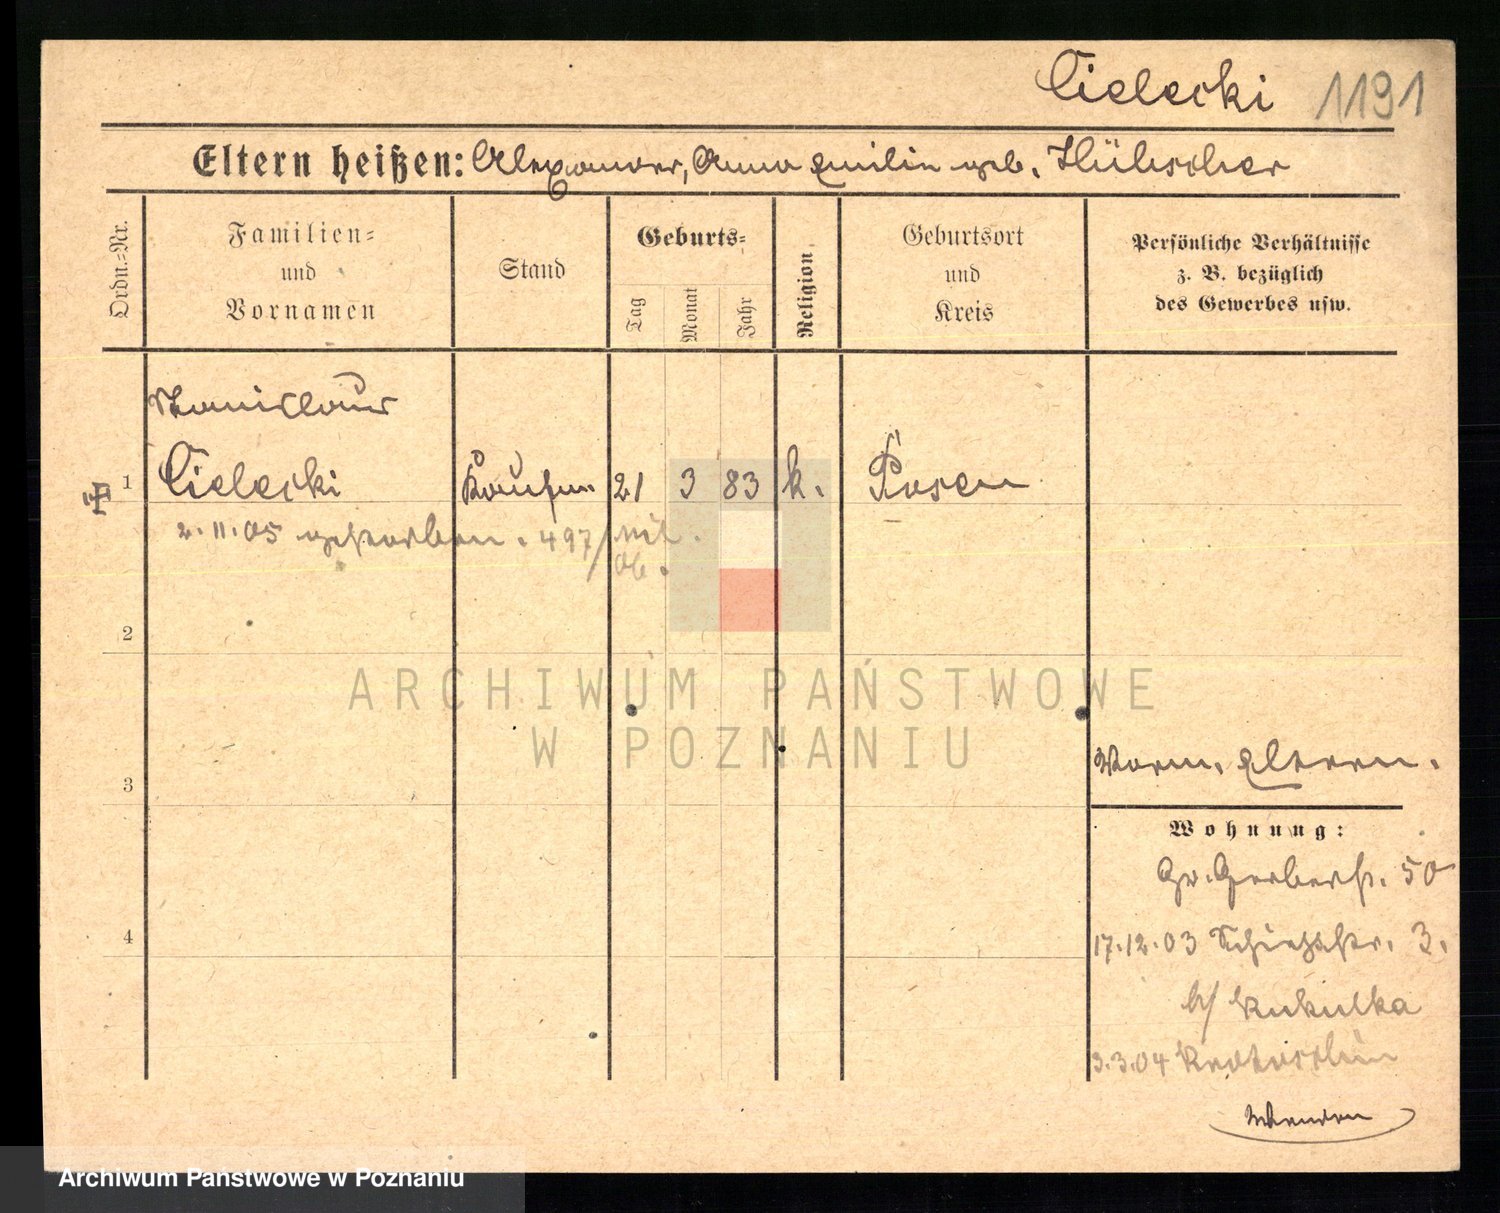 Cielecki 1191
Eltern heißen: Alexander, Anna Emilie geb. Hübscher
Ordn.-Nr.
Familien-
und
Vornamen
Stand
Geburts-
Tag
Monat
Jahr
Religion
Geburtsort
und
Kreis
Persönliche Verhältnisse
z. B. bezüglich
des Gewerbes usw.
Stanislaus
1 Cielecki Kaufm. 21 3 83 k. Posen
2.11.05 gestorben. 497/
06.
2
ARCHIWUM PAŃSTWOWE
W POZNANIU
3
Eltern.
Wohnung:
Gr. Gerberstr. 50
4
17.12.03 Schießstr. 3.
b/ Kukulka
3.3.04 Krotoschin
Archiwum Państwowe w Poznaniu